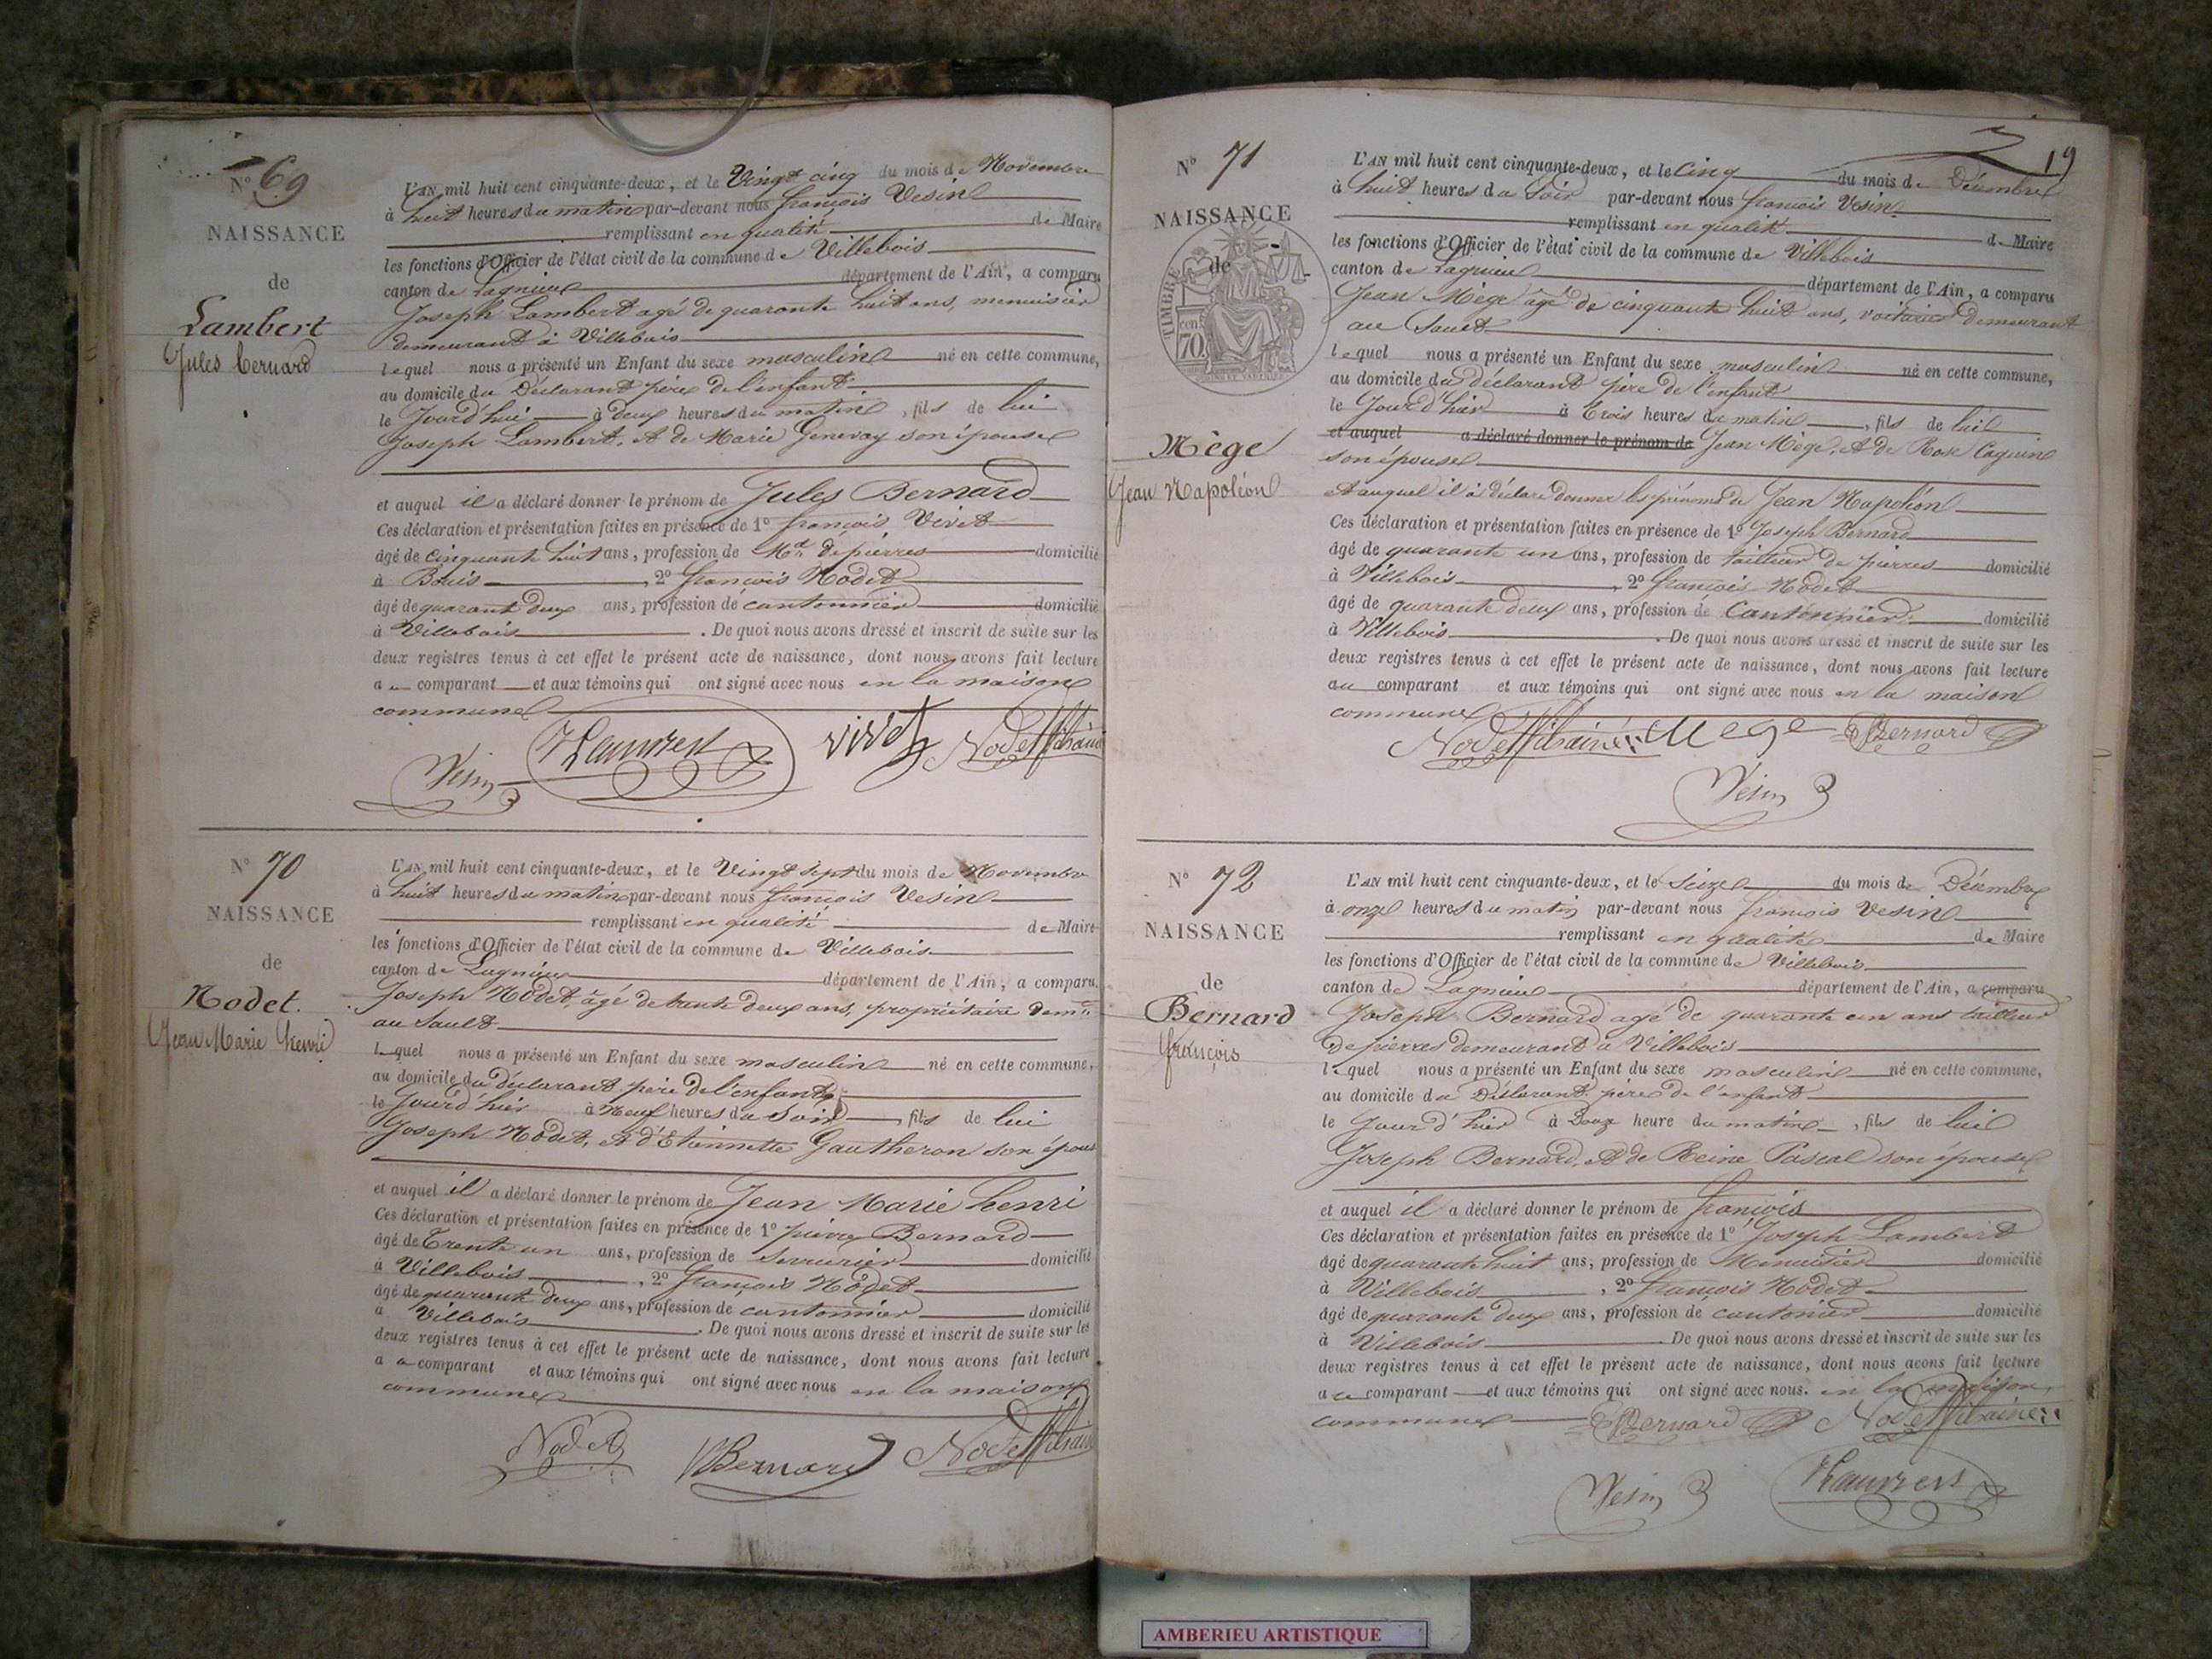 Nº 69
NAISSANCE
de
Lambert
Jules bernard
L'AN mil huit cent cinquante-deux, et le Vingt cinq du mois de Novembre
à huit heures du matin par-devant nous françois Vesin
remplissant en qualité de Maire
les fonctions d'Officier de l'état civil de la commune de Villebois
canton de Lagnieu département de l'Ain, a comparu
Joseph Lambert agé de quarante huit ans, menuisier
demeurant à Villebois
lequel nous a présenté un Enfant du sexe masculin né en cette commune,
au domicile du Déclarant père de l'enfant
le Jourd'hui à deux heures du matin, fils de lui
Joseph Lambert, et de Marie Genevay son épouse
et auquel il a déclaré donner le prénom de Jules Bernard
Ces déclaration et présentation faites en présence de 1º françois Vivet
âgé de cinquante huit ans, profession de Md de pierres domicilié
à Bouis, 2º françois Nodet
âgé de quarante deux ans, profession de cantonnier domicilié
à Villebois. De quoi nous avons dressé et inscrit de suite sur les
deux registres tenus à cet effet le présent acte de naissance, dont nous avons fait lecture
au comparant et aux témoins qui ont signé avec nous en la maison
commune
Vesin vivet Nodet
Nº 70
NAISSANCE
de
Nodet.
Jean Marie henri
L'AN mil huit cent cinquante-deux, et le Vingt sept du mois de Novembre
à huit heures du matin par-devant nous françois Vesin
remplissant en qualité de Maire
les fonctions d'Officier de l'état civil de la commune de Villebois
canton de Lagnieu département de l'Ain, a comparu
Joseph Nodet, âgé de trente deux ans, propriétaire demt
au Sault
lequel nous a présenté un Enfant du sexe masculin né en cette commune,
au domicile du déclarant père de l'enfant
le Jour d'hier à Neuf heures du Soir, fils de lui
Joseph Nodet, et d'Etiennette Gautheron son épouse
et auquel il a déclaré donner le prénom de Jean Marie henri
Ces déclaration et présentation faites en présence de 1º pierre Bernard
âgé de trente un ans, profession de Serrurier domicilié
à Villebois, 2º françois Nodet
âgé de quarante deux ans, profession de cantonnier domicilié
à Villebois. De quoi nous avons dressé et inscrit de suite sur les
deux registres tenus à cet effet le présent acte de naissance, dont nous avons fait lecture
au comparant et aux témoins qui ont signé avec nous en la maison
commune
Nodet Bernard Nodet
19
Nº 71
NAISSANCE
de
TIMBRE
70 cen
Mège
Jean Napoléon
L'AN mil huit cent cinquante-deux, et le cinq du mois de Décembre
à huit heures du Soir par-devant nous françois Vesin
remplissant en qualité de Maire
les fonctions d'Officier de l'état civil de la commune de Villebois
canton de Lagnieu département de l'Ain, a comparu
Jean Mège âgé de cinquante huit ans, voiturier demeurant
au Sault
lequel nous a présenté un Enfant du sexe masculin né en cette commune,
au domicile du déclarant père de l'enfant
le Jour d'hier à trois heures du matin, fils de lui
et auquel a déclaré donner le prénom de Jean Mège, et de Rose Cagnin
son épouse
et auquel il a déclaré donner les prénoms de Jean Napoléon
Ces déclaration et présentation faites en présence de 1º Joseph Bernard
âgé de quarante un ans, profession de tailleur de pierres domicilié
à Villebois, 2º françois Nodet
âgé de quarante deux ans, profession de Cantonnier domicilié
à Villebois. De quoi nous avons dressé et inscrit de suite sur les
deux registres tenus à cet effet le présent acte de naissance, dont nous avons fait lecture
au comparant et aux témoins qui ont signé avec nous en la maison
commune
Nodet Mege Bernard
Vesin
Nº 72
NAISSANCE
de
Bernard
françois
L'AN mil huit cent cinquante-deux, et le Seize du mois de Décembre
à onze heures du matin par-devant nous françois Vesin
remplissant en qualité de Maire
les fonctions d'Officier de l'état civil de la commune de Villebois
canton de Lagnieu département de l'Ain, a comparu
Joseph Bernard agé de quarante un ans tailleur
de pierres demeurant à Villebois
lequel nous a présenté un Enfant du sexe masculin né en cette commune,
au domicile du Déclarant père de l'enfant
le Jour d'hier à Onze heure du matin, fils de lui
Joseph Bernard, et de Reine Pascal son épouse
et auquel il a déclaré donner le prénom de françois
Ces déclaration et présentation faites en présence de 1º Joseph Lambert
âgé de quarante huit ans, profession de Menuisier domicilié
à Villebois, 2º françois Nodet
âgé de quarante deux ans, profession de cantonier domicilié
à Villebois. De quoi nous avons dressé et inscrit de suite sur les
deux registres tenus à cet effet le présent acte de naissance, dont nous avons fait lecture
au comparant et aux témoins qui ont signé avec nous. en la maison
commune Bernard Nodet
Vesin
AMBERIEU ARTISTIQUE